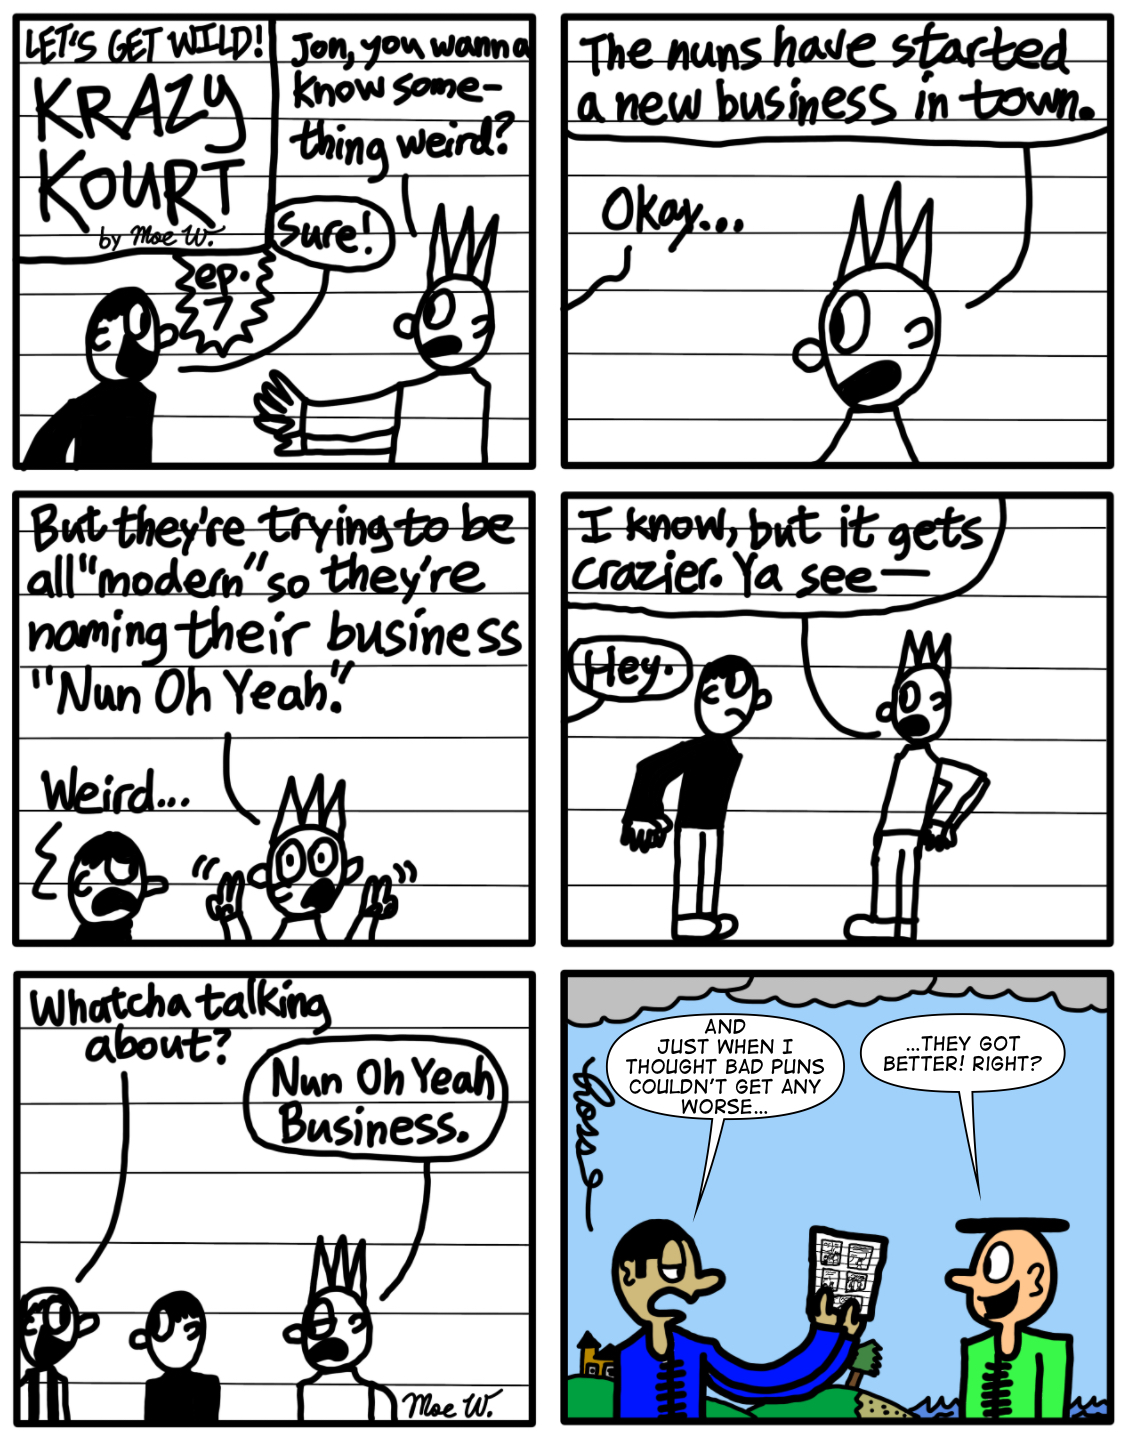 LET'S GET WILD!
KRAZY
KOURT
by Moe W.
ep.
7
Jon, you wanna
know some-
thing weird?
Sure!
The nuns have started
a new business in town.
Okay...
But they're trying to be
all "modern" so they're
naming their business
"Nun Oh Yeah."
Weird...
I know, but it gets
crazier. Ya see—
Hey.
Whatcha talking
about?
Nun Oh Yeah
Business.
Moe W.
AND
JUST WHEN I
THOUGHT BAD PUNS
COULDN'T GET ANY
WORSE...
...THEY GOT
BETTER! RIGHT?